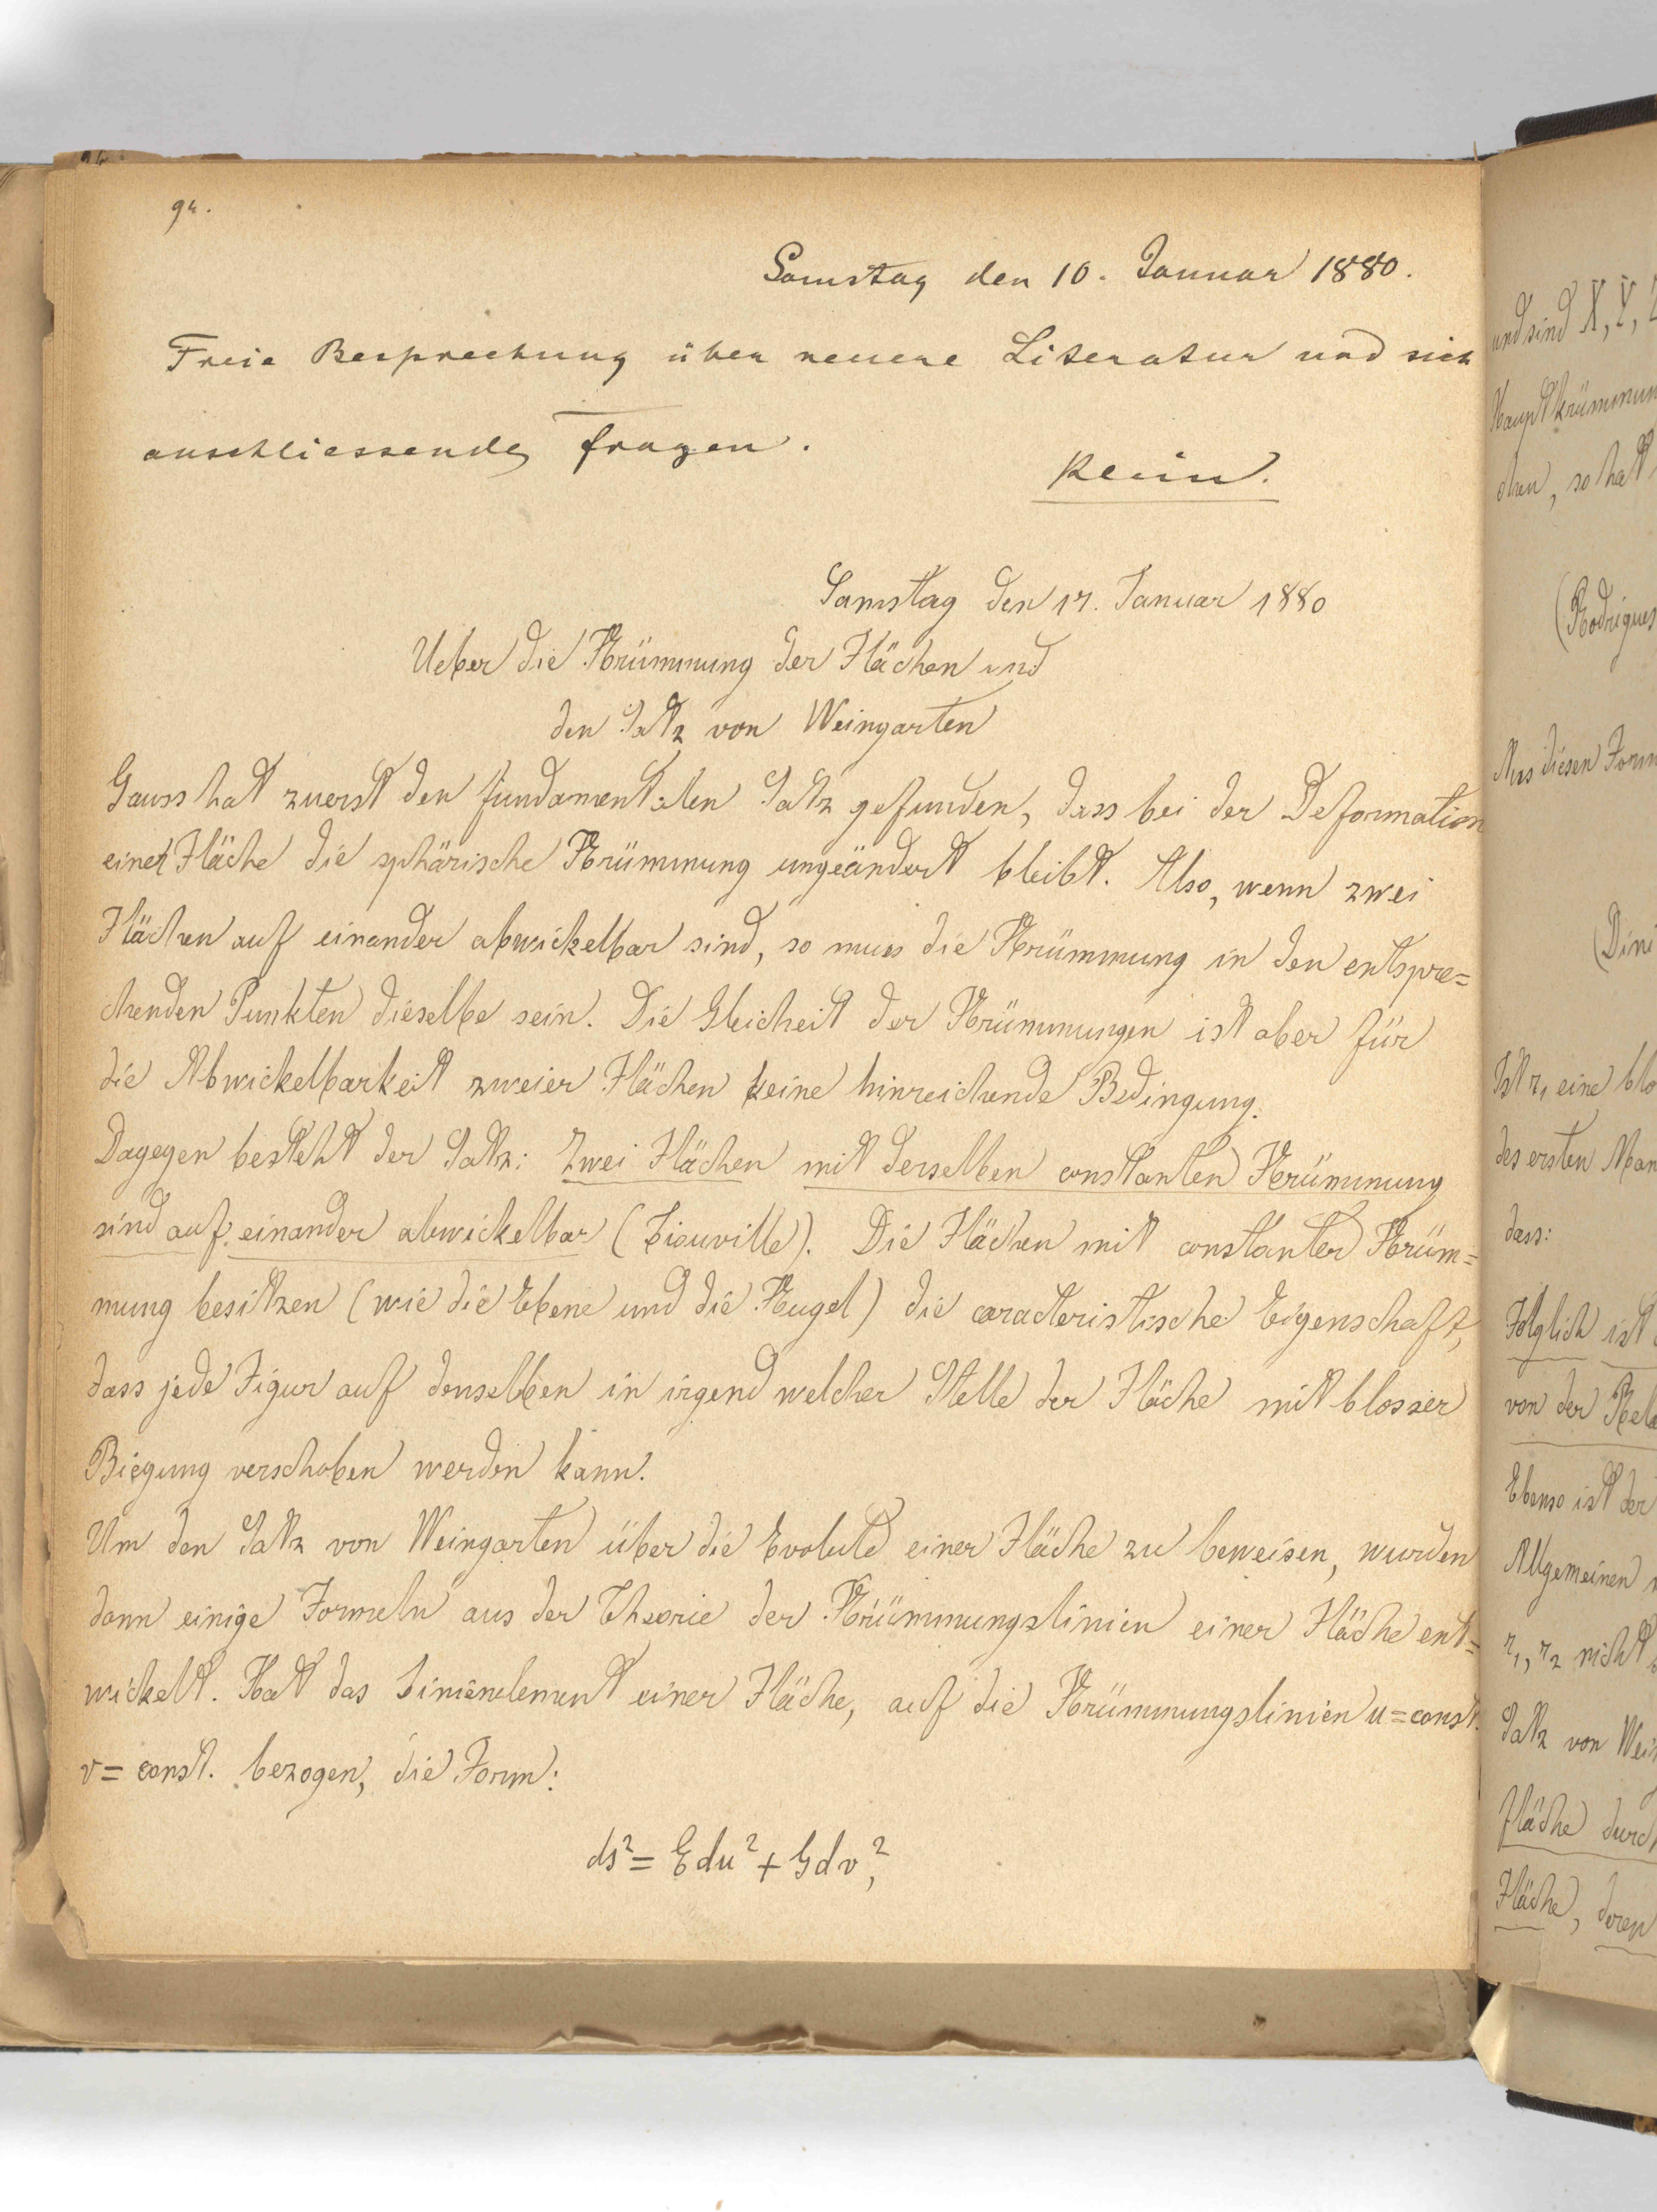 94.
Samstag den 10. Januar 1880.
Freie Besprechung über neuere Literatur und sich
anschliessende Fragen.
Klein.
Samstag den 17. Januar 1880
Ueber die Krümmung der Flächen und
den Satz von Weingarten
Gauss hat zuerst den fundamentalen Satz gefunden, dass bei der Deformation
einer Fläche die sphärische Krümmung ungeändert bleibt. Also, wenn zwei
Flächen auf einander abwickelbar sind, so muss die Krümmung in den entspre=
chenden Punkten dieselbe sein. Die Gleicheit der Krümmungen ist aber für
die Abwickelbarkeit zweier Flächen keine hinreichende Bedingung.
Dagegen besteht der Satz: Zwei Flächen mit derselben constanten Krümmung
sind auf einander abwickelbar (Liouville). Die Flächen mit constanter Krüm=
mung besitzen (wie die Ebene und die Kugel) die caracteristische Eigenschaft,
dass jede Figur auf denselben in irgend welcher Stelle der Fläche mit blosser
Biegung verschoben werden kann.
Um den Satz von Weingarten über die Evolute einer Fläche zu beweisen, wurden
dann einige Formeln aus der Theorie der Krümmungslinien einer Fläche ent=
wickelt. Hat das Linienelement einer Fläche, auf die Krümmungslinien u=const.
v=const. bezogen, die Form:
ds²=Edu²+Gdv²,
und sind X, Y,
Hauptkrümmun
chen, so hat
(Rodrigues
Aus diesen Form
(Dini
Ist r₁ eine blo
des ersten Man
dass:
Folglich ist
von der Rela
Ebenso ist der
Allgemeinen
r₁, r₂ nicht
Satz von Wein
fläche durch
Fläche, deren